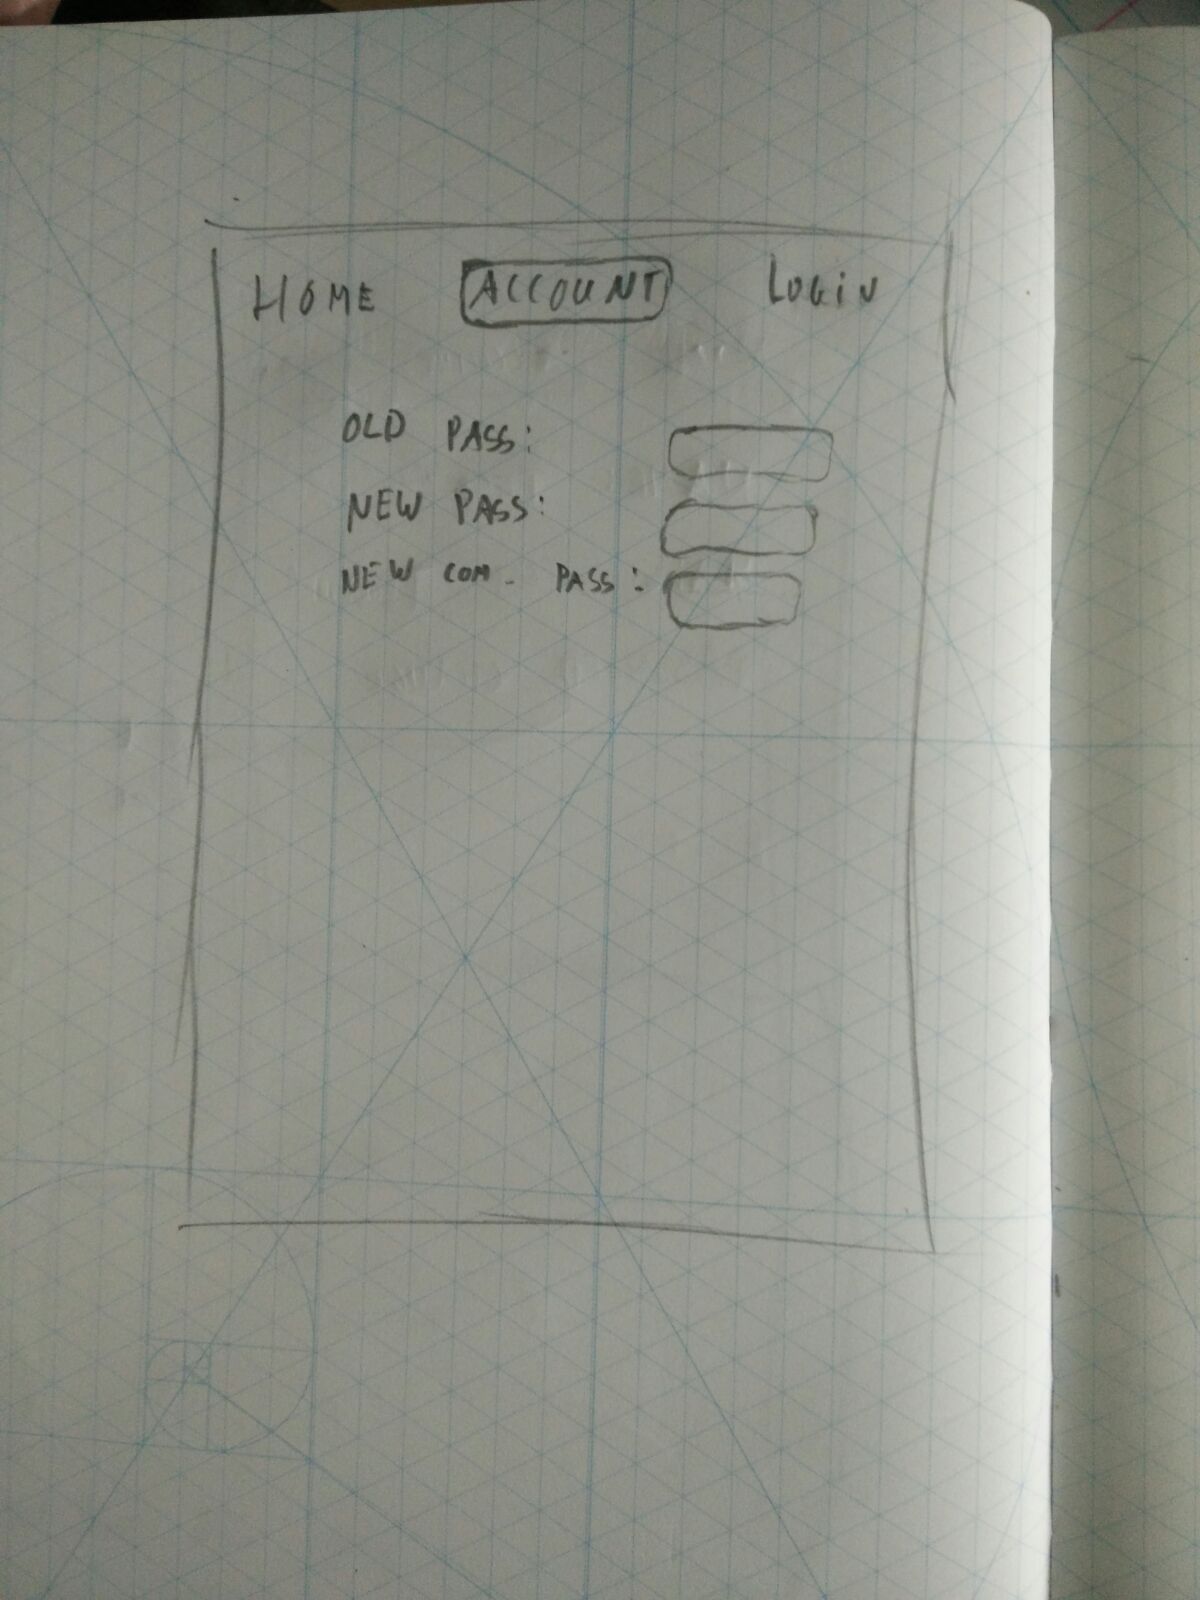 HOME ACCOUNT LOGIN
OLD PASS:
NEW PASS:
NEW COM. PASS: